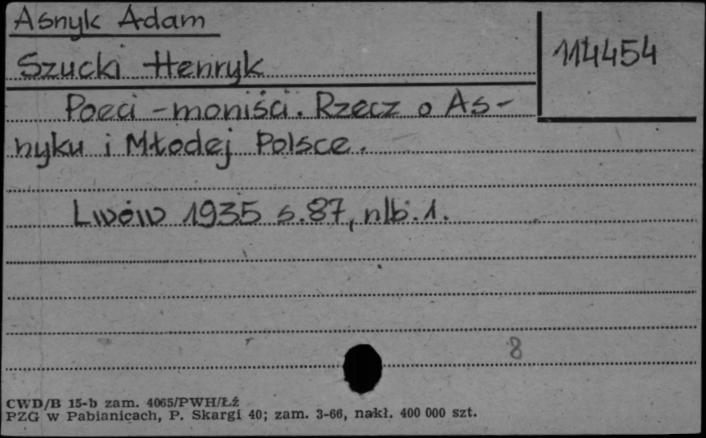 Asnyk Adam
114454
Szucki Henryk
Poeci - moniści. Rzecz o As-
nyku i Młodej Polsce.
Lwów 1935 s. 87, nlb. 1.
8
CWD/B 15-b zam. 4065/PWH/Łź
PZG w Pabianicach, P. Skargi 40; zam. 3-66, nakł. 400 000 szt.